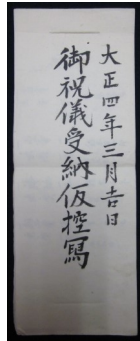 大正四年三月吉日
御祝儀受納仮控寫